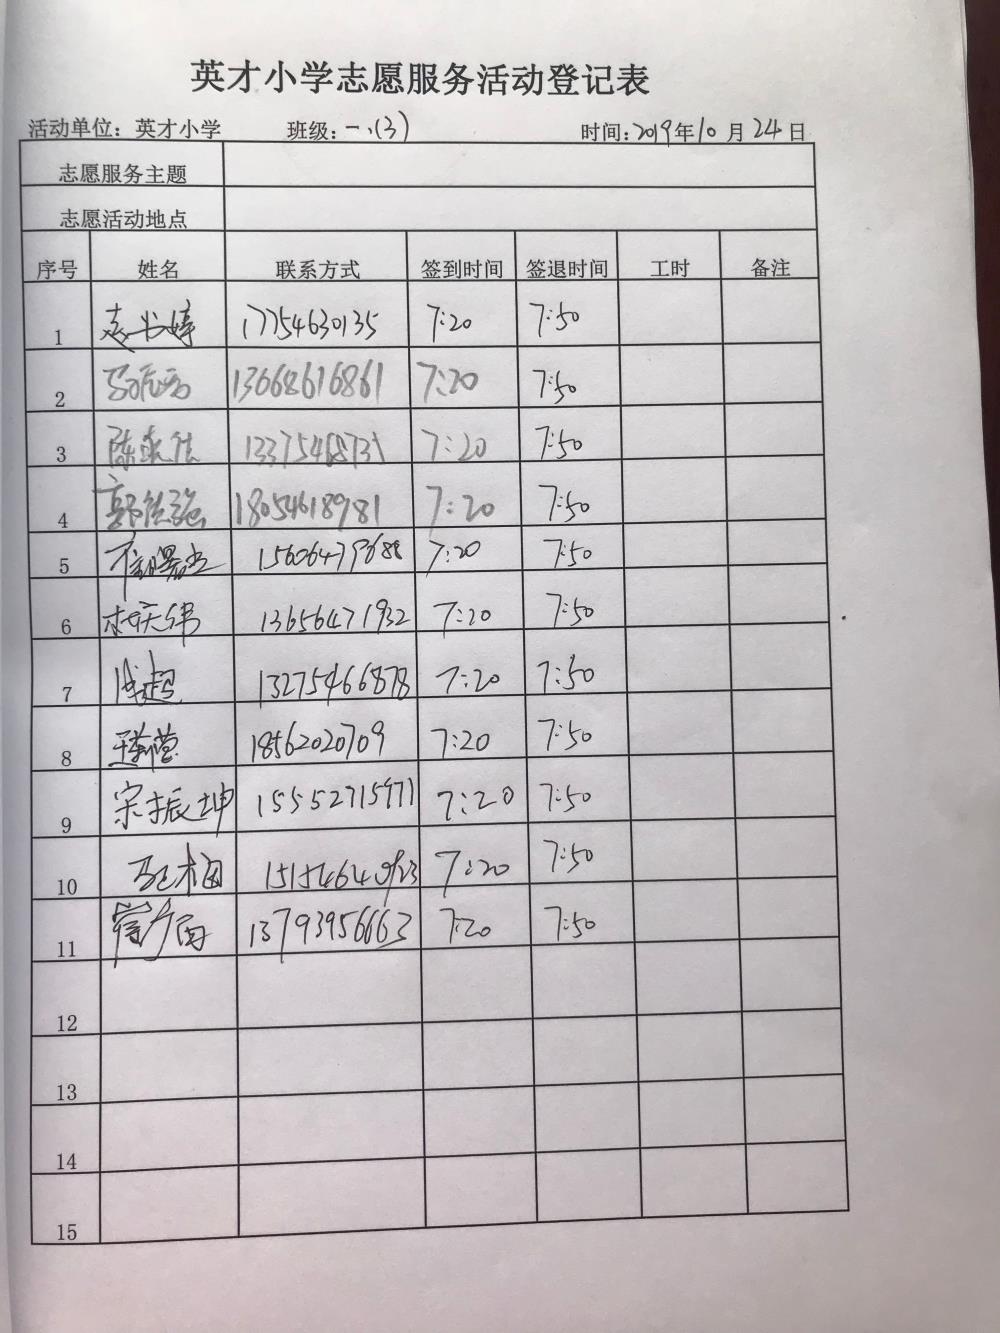 英才小学志愿服务活动登记表
活动单位：英才小学 班级：一.(3) 时间：2019年10月24日
志愿服务主题
志愿活动地点
序号 姓名 联系方式 签到时间 签退时间 工时 备注
1 17754630135 7:20 7:50
2 13668616861 7:20 7:50
3 陈 佳 7:20 7:50
4 郭 18054618981 7:20 7:50
5 7:20 7:50
6 杜庆伟 13656471932 7:20 7:50
7 超 13275466878 7:20 7:50
8 18562020709 7:20 7:50
9 宗振坤 15552715971 7:20 7:50
10 7:20 7:50
11 13793956663 7:20 7:50
12
13
14
15